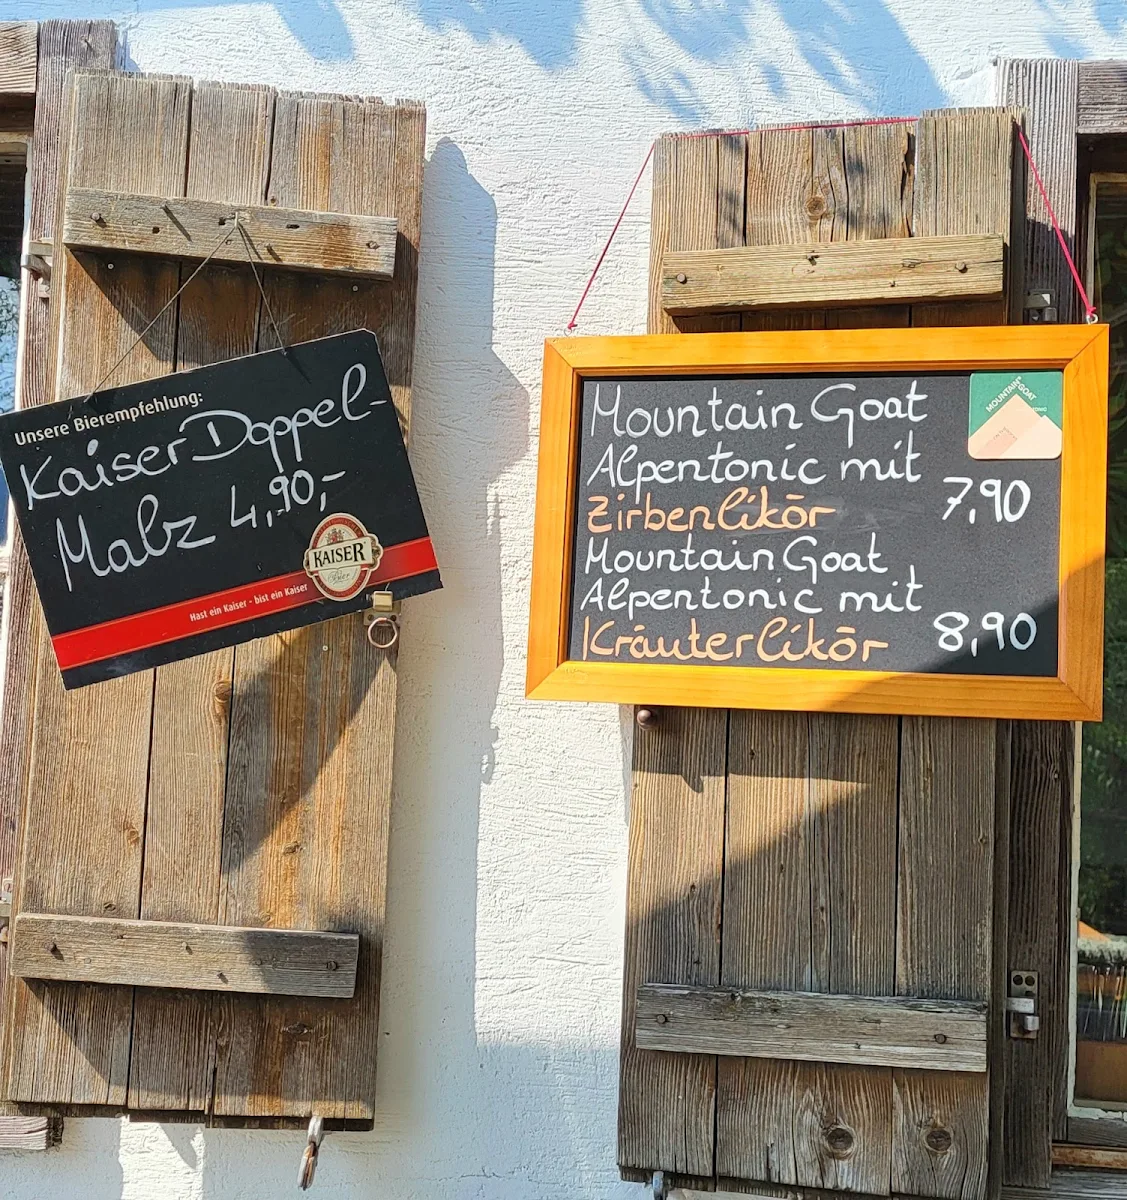 Unsere Bierempfehlung:
Kaiser Doppel-
Malz 4,90,-
KAISER
Bier
Hast ein Kaiser - bist ein Kaiser
Mountain Goat
Alpentonic mit
Zirbenlikör 7,90
Mountain Goat
Alpentonic mit
Kräuterlikör 8,90
MOUNTAIN
GOAT